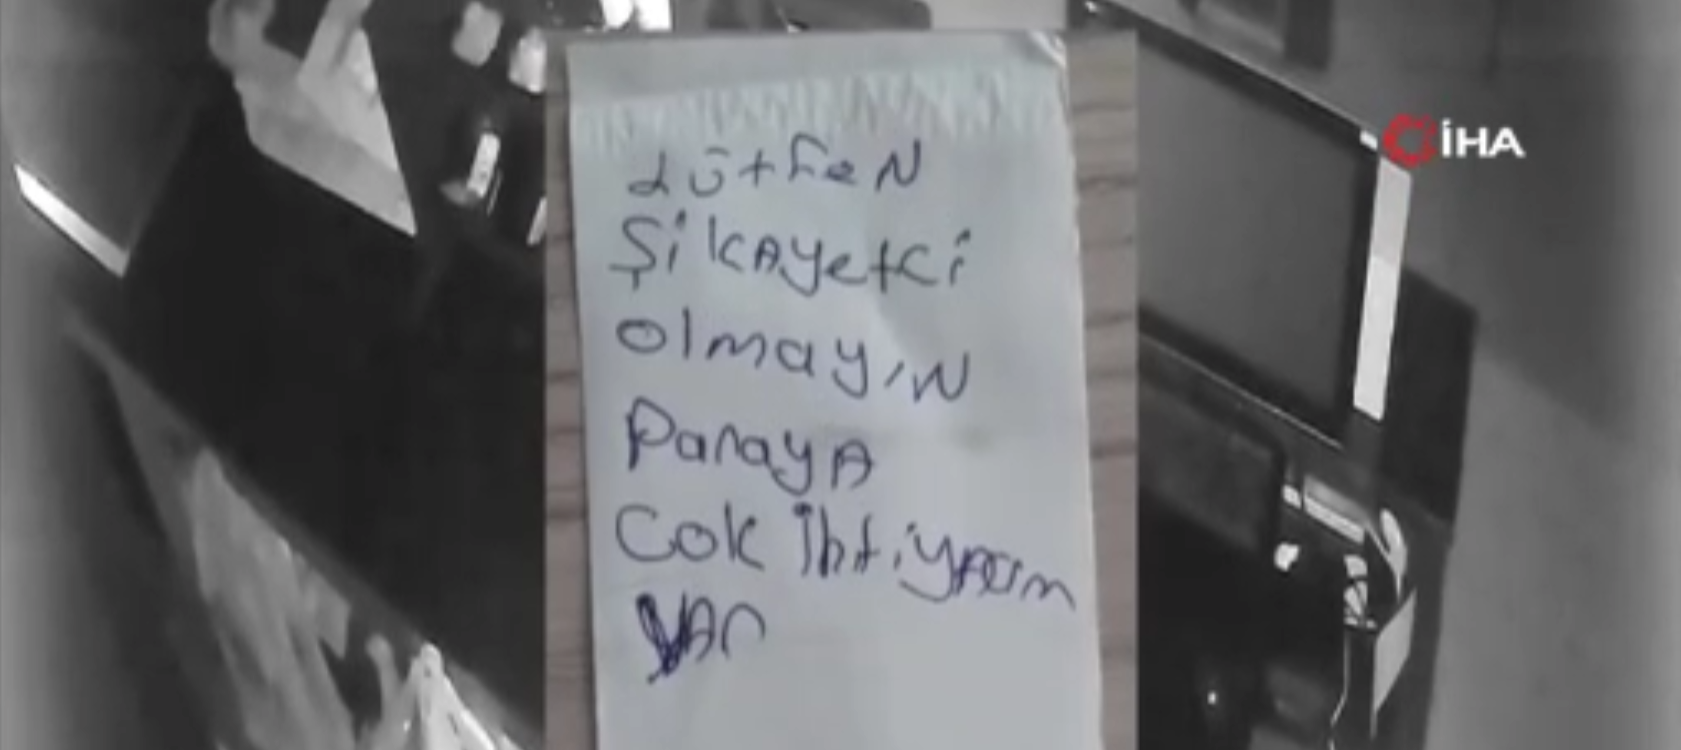 İHA
Lütfen
Şikayetci
olmayın
Paraya
Cok ihtiyacım
VAr